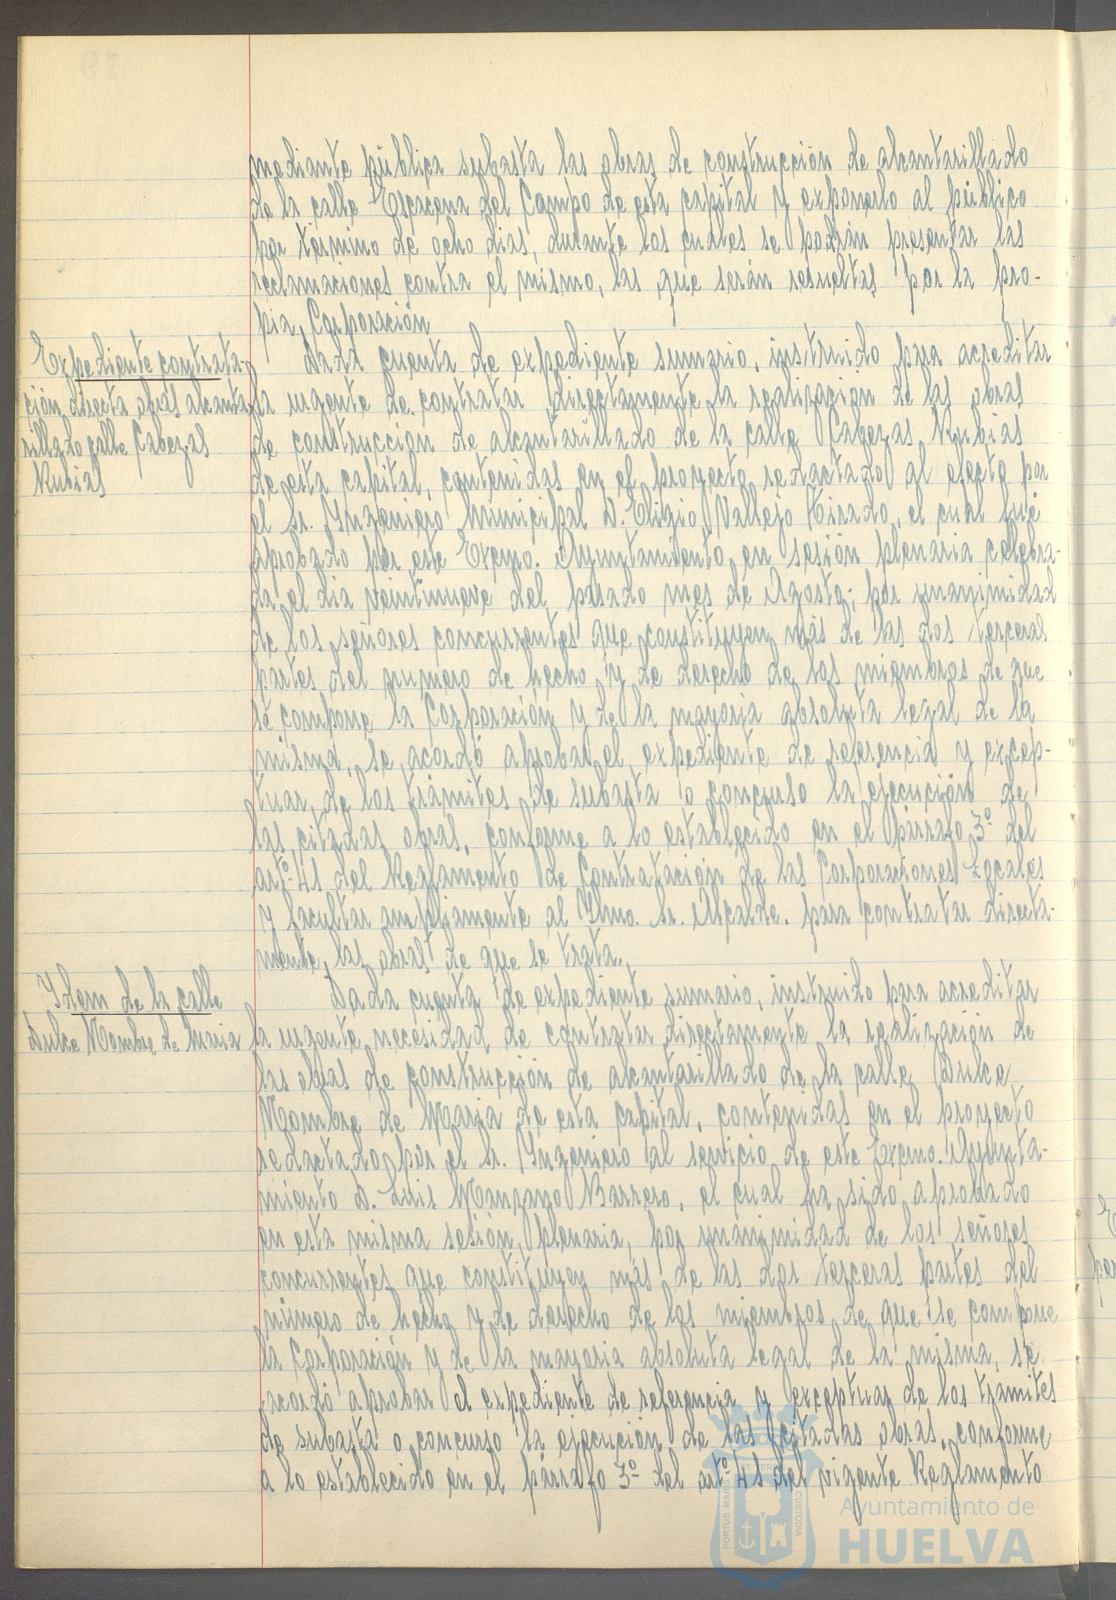 mediante pública subasta las obras de construcción de alcantarillado
de la calle Escacena del Campo de esta capital y exponerlo al público
por término de ocho dias, durante los cuales se podrán presentar las
reclamaciones contra el mismo, las que serán resueltas por la pro-
pia Corporación
Expediente contrata-
ción directa obras alcanta
rillado calle Cabezas
Rubias
Dada cuenta de expediente sumario, instruido para acreditar
la urgente de contratar directamente la realización de las obras
de construcción de alcantarillado de la calle Cabezas Rubias
de esta capital, contenidas en el proyecto redactado al efecto por
el Sr. Ingeniero Municipal D. Eligio Vallejo Tirado, el cual fué
aprobado por este Excmo. Ayuntamiento en sesión plenaria celebra-
da el dia veintinueve del pasado mes de Agosto; por unanimidad
de los señores concurrentes que constituyen más de las dos terceras
partes del numero de hecho y de derecho de los miembros de que
se compone la Corporación y de la mayoria absoluta legal de la
misma, se acordó aprobar el expediente de referencia y excep-
tuar de los trámites de subasta o concurso la ejecución de
las citadas obras, conforme a lo establecido en el párrafo 3º del
artº. 41 del Reglamento de Contratación de las Corporaciones Locales
y facultar ampliamente al Iltmo. Sr. Alcalde. para contratar directa-
mente, las obras de que se trata.
Idem de la calle
Dulce Nombre de Maria
Dada cuenta de expediente sumario, instruido para acreditar
la urgente necesidad de contratar directamente la realización de
las obras de construcción de alcantarillado de la calle Dulce
Nombre de Maria de esta capital, contenidas en el proyecto
redactado por el Sr. Ingeniero al servicio de este Excmo. Ayunta-
miento D. Luis Manzano Barrero, el cual ha sido aprobado
en esta misma sesión plenaria, por unanimidad de los señores
concurrentes que constituyen más de las dos terceras partes del
número de hecho y de derecho de los miembros de que se compone
la Corporación y de la mayoria absoluta legal de la misma, se
acordó aprobar el expediente de referencia y exceptuar de los trámites
de subasta o concurso la ejecución de las citadas obras, conforme
a lo establecido en el párrafo 3º del artº. 41 del vigente Reglamento
PORTUS MARIS
CUSTODIA
Ayuntamiento de
HUELVA